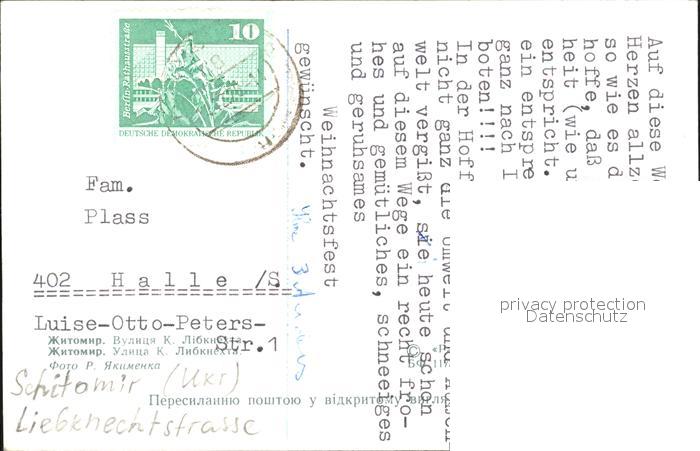 Berlin-Rathausstraße
10
DEUTSCHE DEMOKRATISCHE REPUBLIK
Fam.
Plass
402 Halle /S.
Luise-Otto-Peters-
Str.1
Житомир. Вулиця К. Лібкнехта.
Житомир. Улица К. Либкнехта.
Фото Р. Якименка
Schitomir (Ukr)
Liebknechtstrasse
Пересиланню поштою у відкритому
Auf diese
Herzen allz
so wie es d
hoffe, daß
heit (wie u
entspricht.
ein entspre
ganz nach I
boten!!!!
In der Hoff
nicht ganz die Umwelt und
welt vergißt, sie heute schon
auf diesem Wege ein recht fro-
hes und gemütliches, schneeiges
und geruhsames
Weihnachtsfest
gewünscht.
privacy protection
Datenschutz